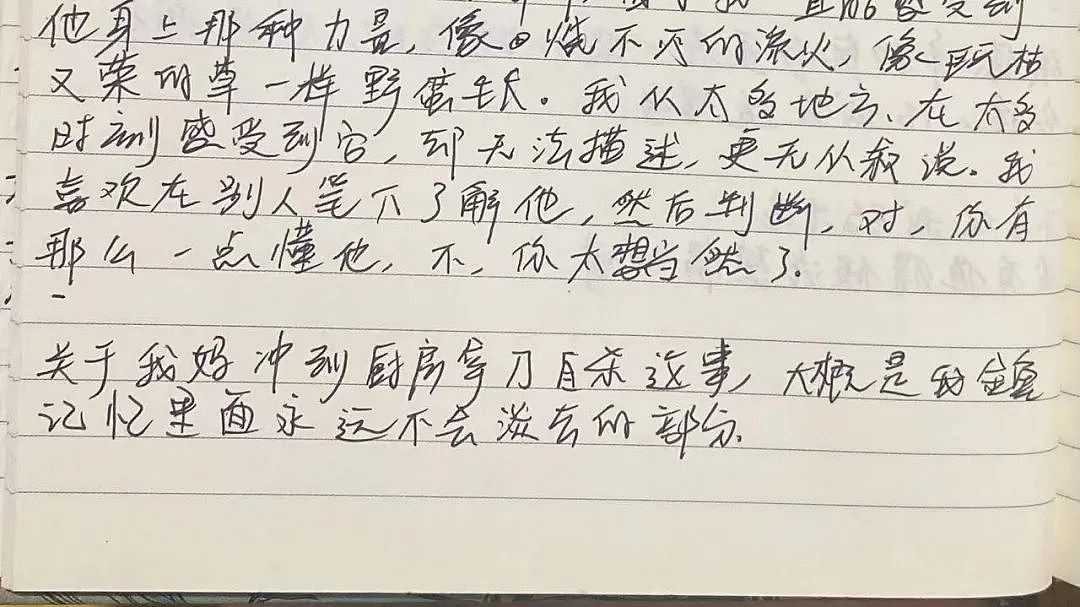 我一直能感受到
他身上那种力量,像烧不灭的流火,像既枯
又荣的草一样野蛮生长。我从太多地方、在太多
时刻感受到它,却无法描述,更无从叙说。我
喜欢在别人笔下了解他,然后判断,对,你有
那么一点懂他,不,你太想当然了。
关于我妈冲到厨房拿刀自杀这事,大概是我童年
记忆里面永远不会淡去的部分。